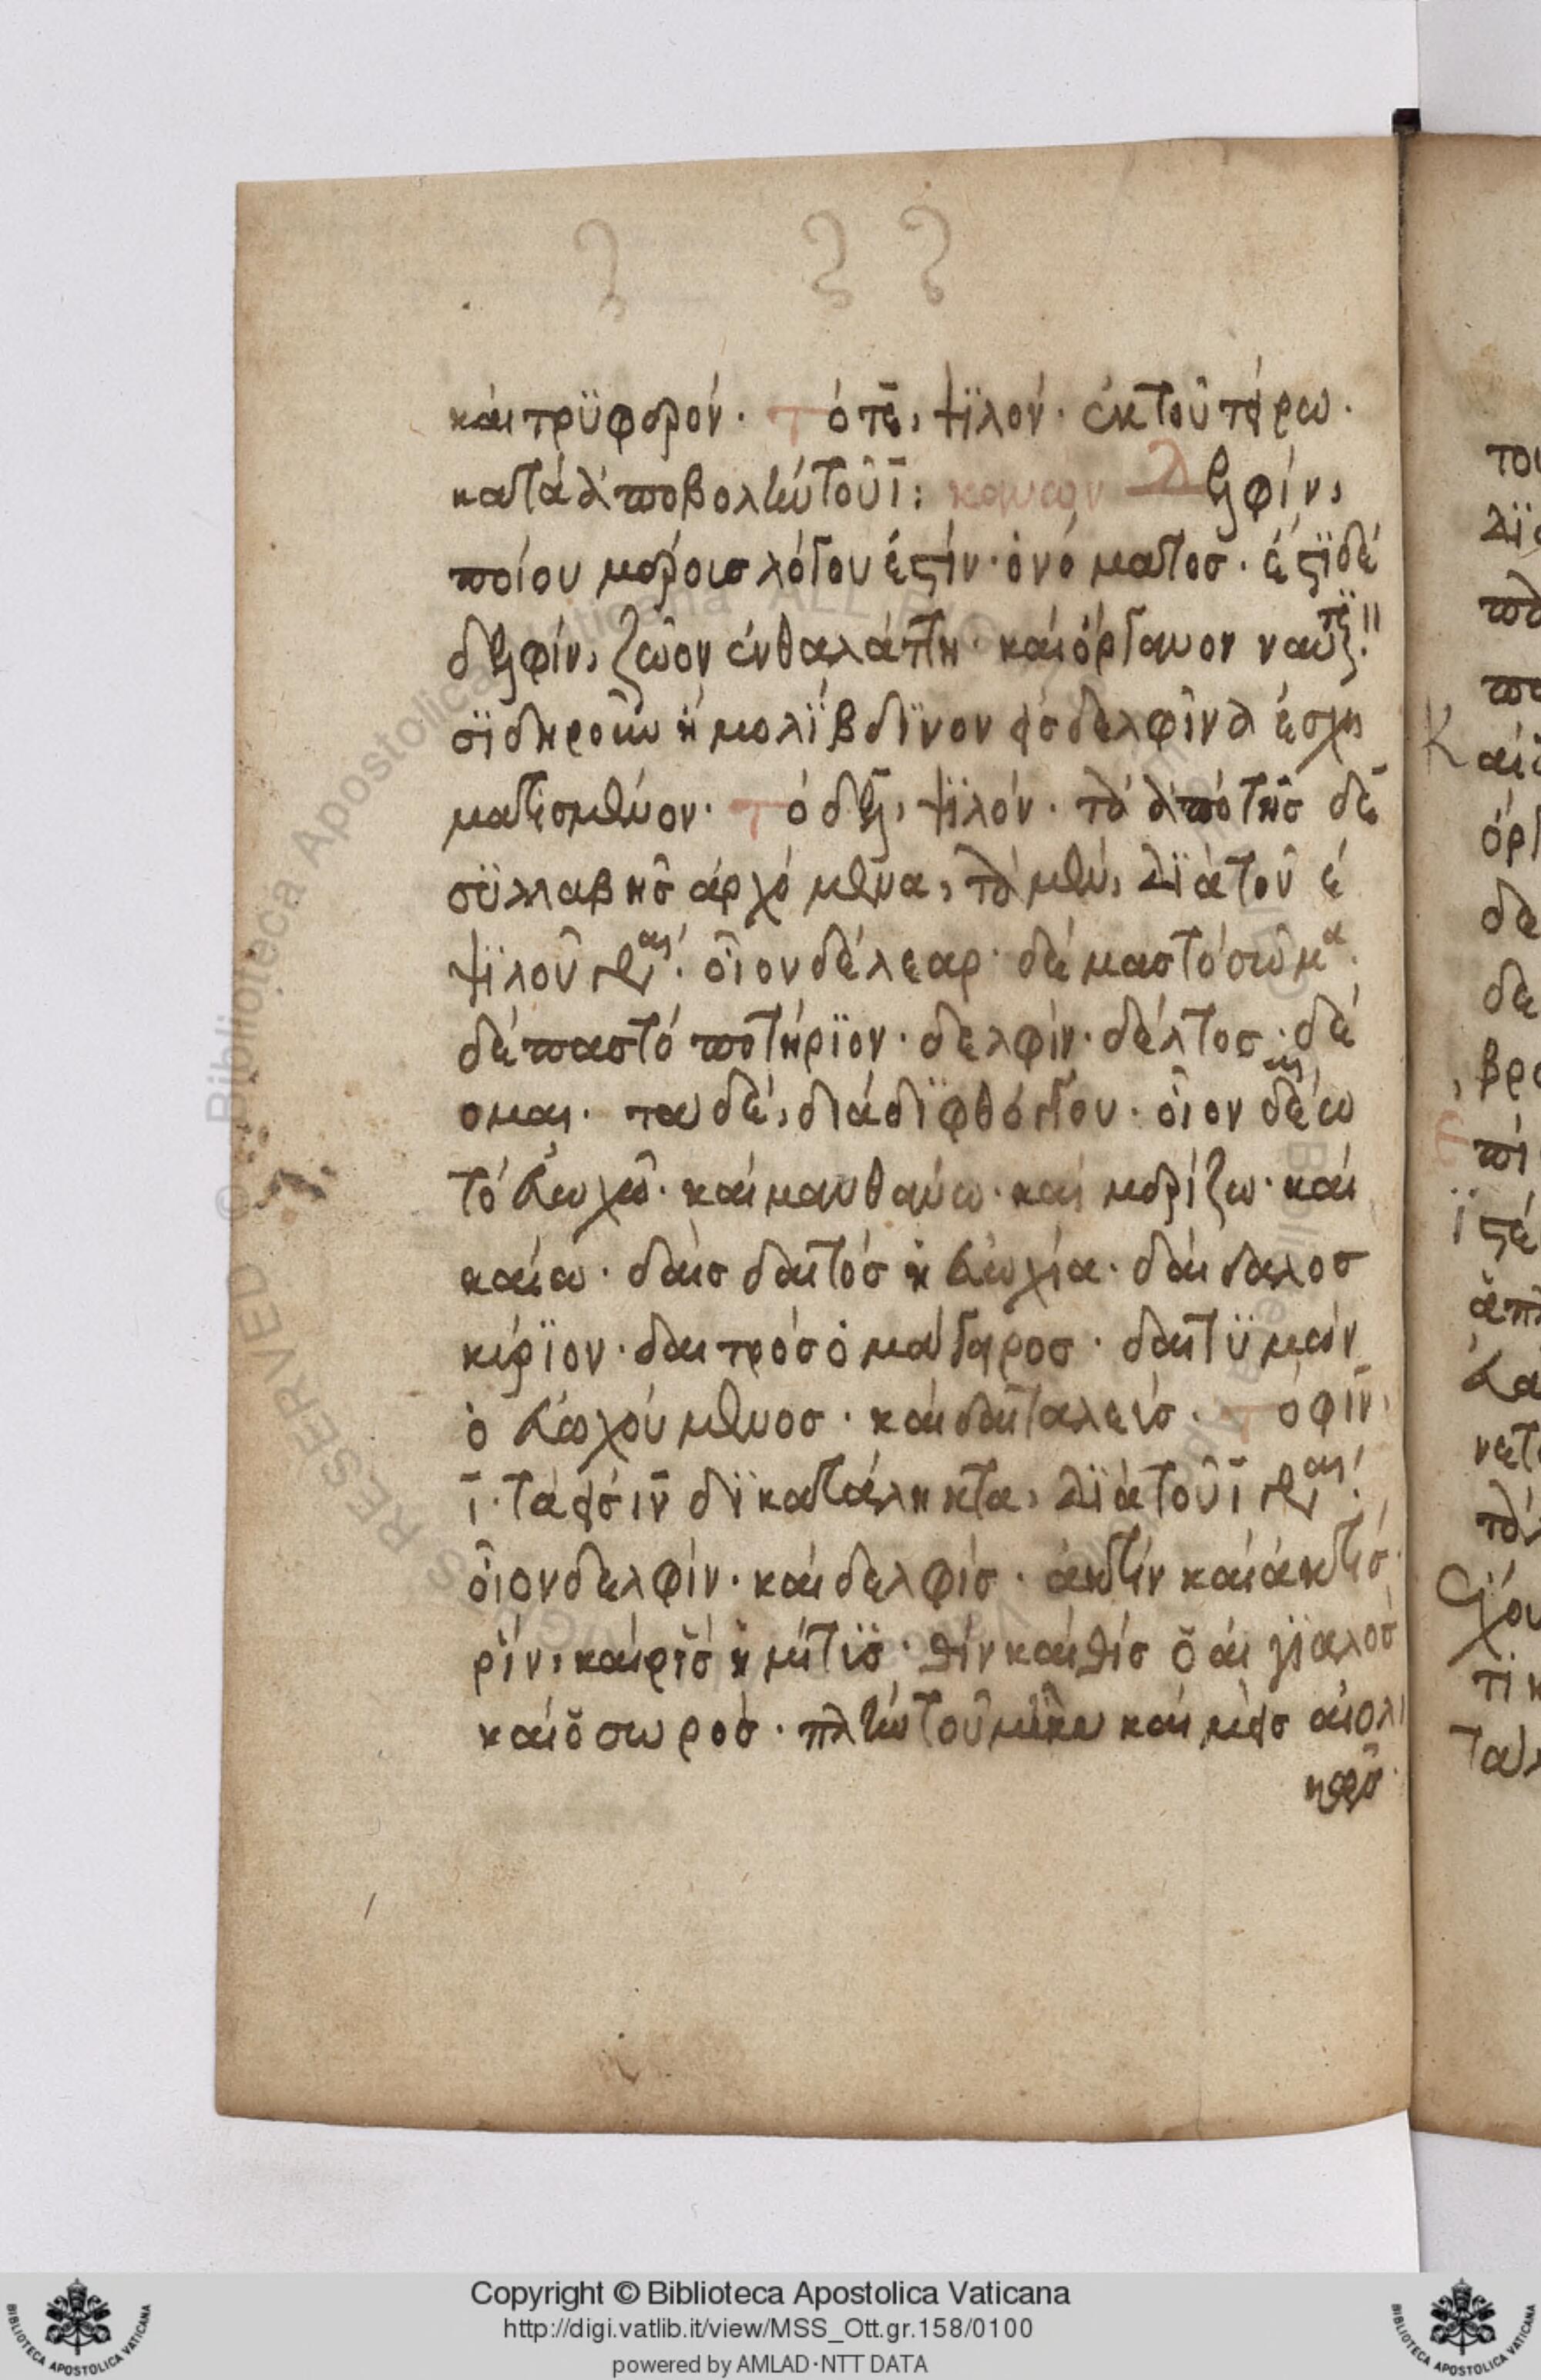 καὶ τρϋφερόν. τὸ τε, ψϊλόν. ἐκ τοῦ τείρω.
κατὰ ἀποβολὴν τοῦ ϊ: κανων Δελφίν,
ποίου μέρους λόγου ἐστίν. ὀνόματος. ἐστϊ δὲ
δελφίν, ζῶον ἐν θαλάττη. καὶ ὄργανον
σϊδηροῦν ἢ μολϊβδϊνον εἰς δελφῖνα ἐσχη
ματισμένον. τὸ δελ, ψϊλόν. τὰ ἀπὸ τῆς δε
σϋλλαβῆς ἀρχόμενα, τὰ μὲν, διὰ τοῦ ε
ψϊλοῦ γράφεται. οἷον δέλεαρ. δέμας τὸ σῶμα.
δέπας τὸ ποτήρϊον. δελφίν. δέλτος. δέ
ομαι. τὰ δὲ, διὰ δϊφθόγγου. οἷον δαίω
τὸ εὐωχῶ. καὶ μανθάνω. καὶ μερίζω. καὶ
καίω. δαὶς δαιτὸς ἡ εὐωχία. δαίδαλος
κύριον. δαιτρὸς ὁ μάγειρος. δαιτϋμὼν
ὁ εὐωχούμενος. καὶ δαιταλεύς. τὸ φιν
ϊ. τὰ εἰς ιν δϊκατάληκτα, διὰ τοῦ ϊ γράφεται.
οἷον δελφίν. καὶ δελφίς. ἀκτὶν καὶ ἀκτίς.
ρὶν, καὶ ρὶς ἡ μύτϊς. θὶν καὶ θὶς ὁ αἰγϊαλὸς
καὶ ὁ σωρός. πλὴν τοῦ μεὶν καὶ μεὶς αἰολι
Copyright © Biblioteca Apostolica Vaticana
http://digi.vatlib.it/view/MSS_Ott.gr.158/0100
powered by AMLAD·NTT DATA